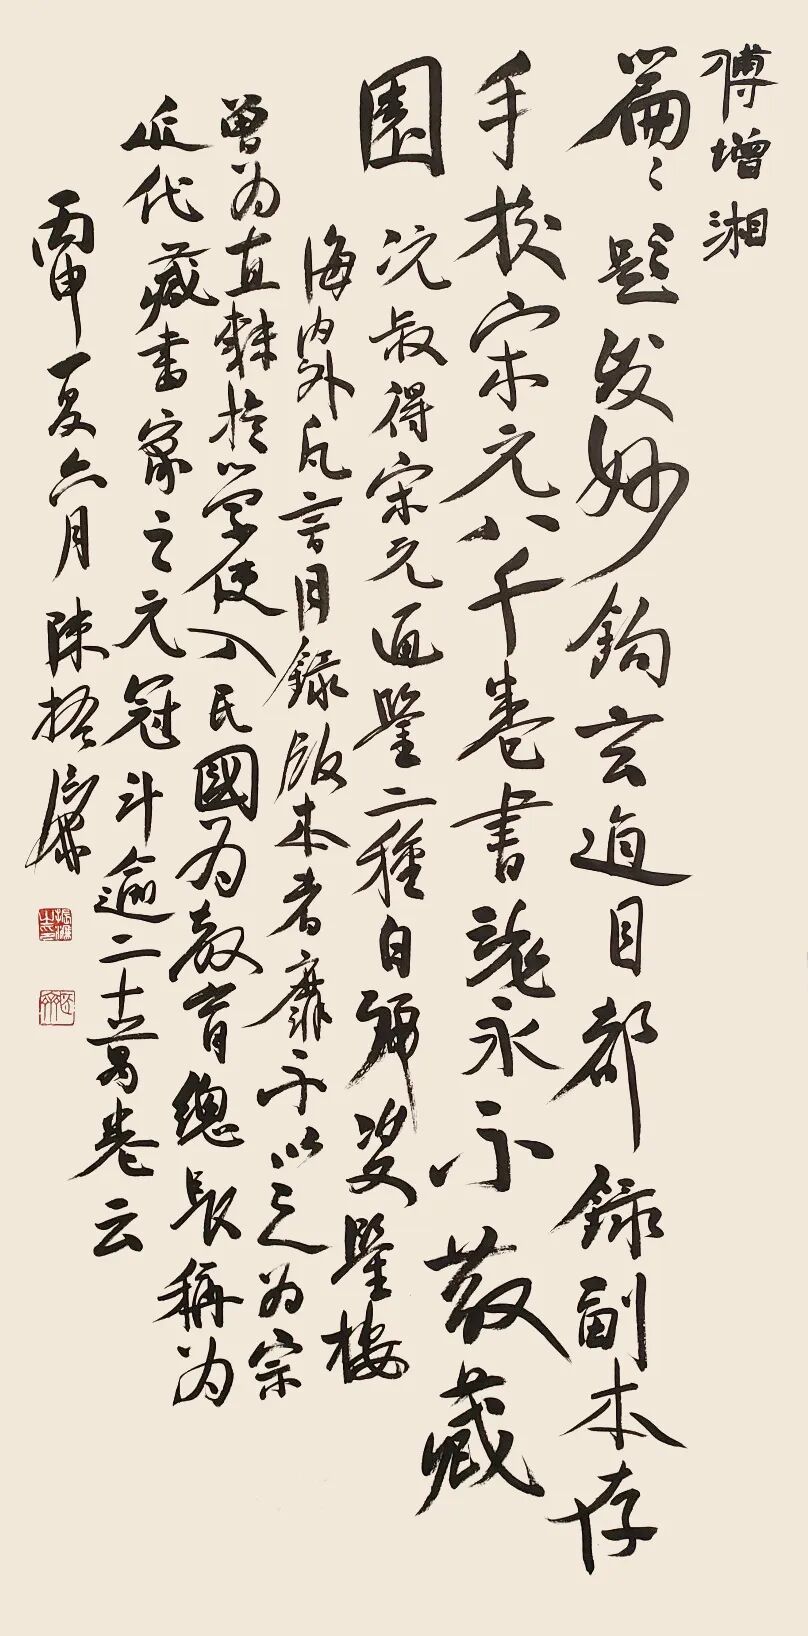 傅增湘
篇〻題发妙鈎玄道目都録副本存
手校宋元八千卷書魂永不散藏
園
沅叔得宋元通鑒二種自號雙鑒樓
海内外凡言目録版本者靡不以之为宗
曾为直隸提學使入民國为教育總長稱为
近代藏書家之元冠斗逾二十萬卷云
丙申夏六月陳振濂